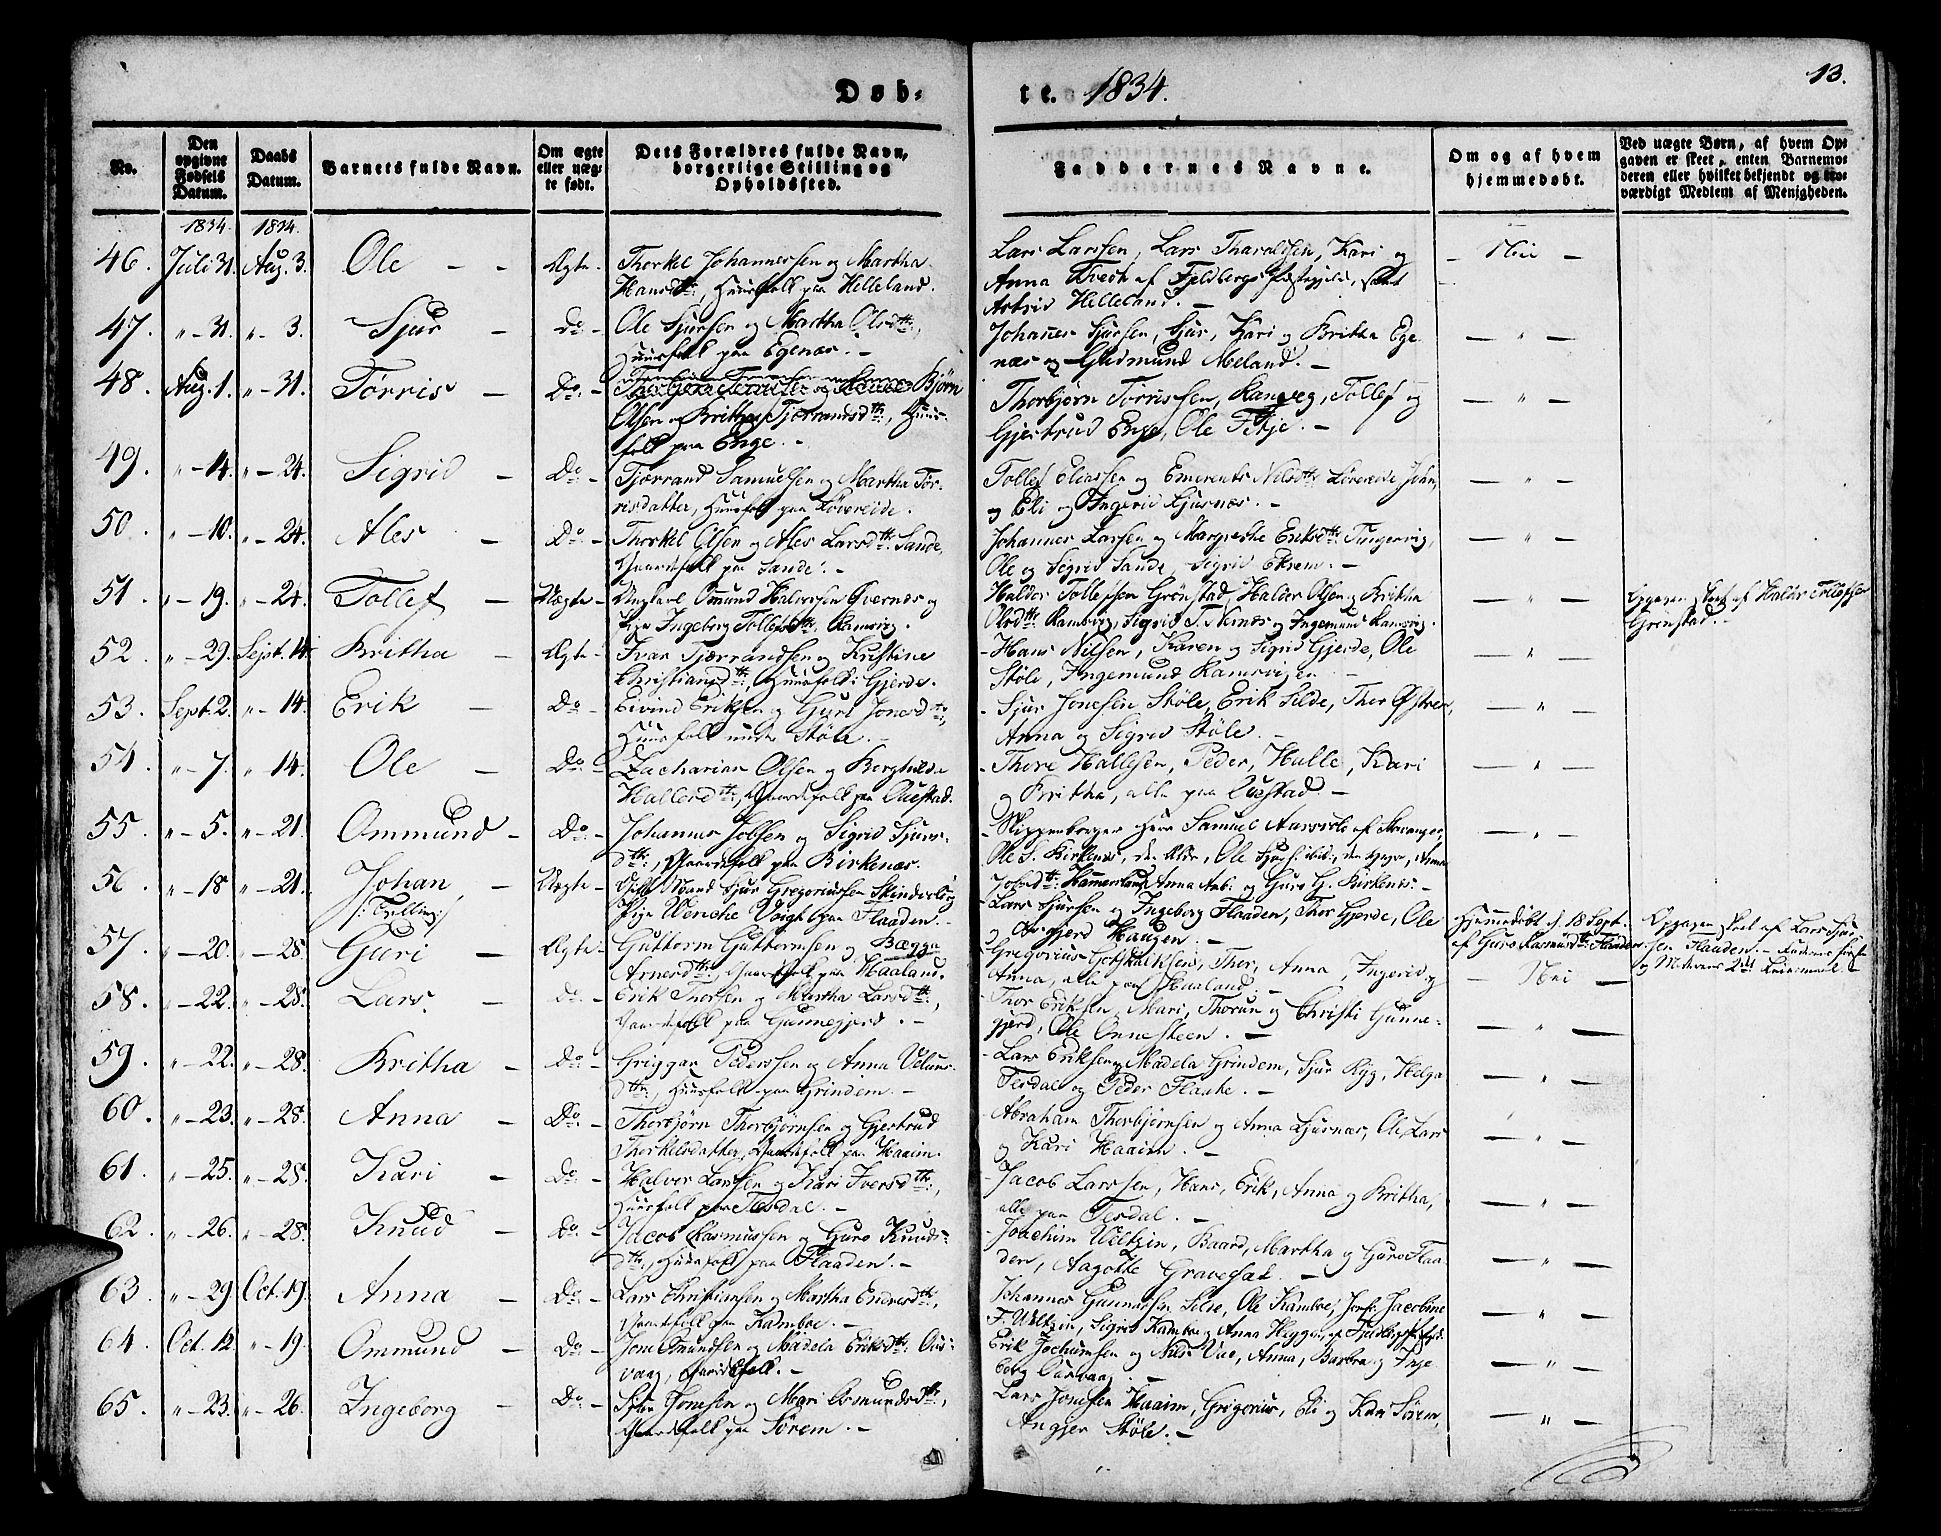 13.
Døb-
te. 1834.
No.
Den opgivne Fødsels Datum.
Daabs Datum.
Barnets fulde Navn.
Om ægte eller uægte født.
Dets Forældres fulde Navn, borgerlige Stilling og Opholdssted.
Faddernes Navne.
Om og af hvem hjemmedøbt.
Ved uægte Børn, af hvem Opgaven er skeet, enten Barnemoderen eller hvilket bekjendt og troværdigt Medlem af Menigheden.
1834. 1834.
46. Juli 31. Aug. 3. Ole - - Ægte - Thorkel Johannessen og Martha
Hansdtr:, Huusfolk paa Helleland.
Lars Larssen, Lars Tharaldsen, Kari og
Anna Tvedt af Fjeldbergs Præstegjeld, samt
Astrid Helleland. -
- Nei -
47. " - 31. " - 3. Sjur - Do - Ole Sjursen og Martha Olsdtr:,
Huusfolk paa Egenæs. -
Johannes Sjursen, Sjur, Kari og Britha Ege-
næs og Gudmund Meland. -
- " -
48. Aug. 1. " - 31. Tørris - Do - Bjørn
Olsen og Britha Tjærransdtr:, Huus-
folk paa Enge. -
Thorbjørn Tørrissen, Ranveg, Tollef og
Gjertrud Enge, Ole Fetje. -
- " -
49. " - 14. " - 24. Sigrid - Do - Tjærrand Samuelsen og Martha Tør-
risdatter, Huusfolk paa Løvereide.
Tollef Eliassen og Emerents Nilsdtr: Løvereide, Johan,
og Eli og Ingerid Hjusnæs. -
- " -
50. " - 10. " - 24. Ales - Do - Thorkel Olsen og Ales Larsdtr: Sande,
Gaardfolk paa Sande. -
Johannes Larsen og Margrethe Eriksdtr: Tungesvig,
Ole og Sigrid Sande, Sigrid Ekrem. -
- " -
51. " - 19. " - 24. Tollef - Uægte - Ungkarl Omund Halvorsen Qvernæs og
Pige Ingeborg Tollefsdtr: Ramsvig.
Haldor Tollefsen Grønstad, Haldor Olsen og Britha
Olsdtr: Ramsvig, Sigrid T. Nernæs og Ingemund Ramsvig.
- " -
Opgaven skeet af Haldor Tollefsen
Grønstad. -
52. " - 29. Sept. 14. Britha - Ægte - Ivar Tjærrandsen og Kristine
Christiansdtr:, Huusfolk i Gjerde.
- Hans Nilsen, Karen og Sigrid Gjerde, Ole
Støle, Ingemund Ramsvigen
- " -
53. Sept. 2. " - 14. Erik - Do - Eivind Eriksen og Guri Jonesdtr:,
Huusfolk under Støle. -
- Sjur Jonesen Støle, Erik Silde, Thor Østren,
Anna og Sigrid Støle. -
- " -
54. " - 7. " - 14. Ole - Do - Zacharias Olsen og Borghilda
Hallesdtr:, Gaardfolk paa Questad.
- Thore Hallesen, Peder, Halle, Kari
og Britha, alle paa Questad. -
- " -
55. " - 5. " - 21. Ommund - Do - Johannes Jobsen og Sigrid Sjurs-
dtr:, Gaardfolk paa Birkenæs.
- Skippenborger Herr Samuel af Stavanger,
Ole S. Birkenæs, den Ældr, Ole Sjurs. ibid:, den Yngre, Anna
Jobsdtr: Hammerland, Anna og Guro G. Birkenæs. -
- " -
56. " - 18 " - 21. Johan - Uægte - Gift Mand Sjur Gregoriussen Skinderlæg
Pige Wenche Voigt paa Flaaden. -
/: Tvilling :/
- Lars Sjursen og Ingeborg Flaaden, Thor Gjerde, Ole
og Haugen. -
Hjemmedøbt d. 18 Sept.
af Guro Rasmusdtr: Flaaden
Opgaven skeet af Lars Sjur-
sen Flaaden. -
57. " - 20. " - 28. Guri - Ægte - Guttorm Guttormsen og Bægga
Arnesdtr:, Gaardfolk paa Haaland.
- Gregorius Gotskalksen, Thor, Anna, Ingerid og
Anna, alle paa Haaland. -
- Nei -
58. " - 22. " - 28. Lars - Do - Erik Thorsen og Martha Larsdtr:,
Gaardfolk paa Gunnegjerd. -
- Thor Eriksen, Mari, Thorun og Christi Gunne-
gjerd, Ole Onnesteen. -
- " -
59. " - 22. " - 28. Britha - Do - Griggar Pedersen og Anna Velums-
dtr:, Huusfolk paa Grindem. -
- Lars Eriksen og Madela Grindem, Sjur Ryg, Helga
Tesdal og Peder Flaate. -
- " -
60. " - 23. " - 28. Anna - Do - Thorbjørn Thorbjørnsen og Gjertrud
Thorkelsdatter, Gaardfolk paa Haaim.
- Abraham Thorbjørnsen og Anna Hjusnæs, Ole, Lars
og Kari Haaim. -
- " -
61. " - 25. " - 28. Kari - Do - Halvor Larssen og Kari Iversdtr:,
Huusfolk paa Tesdal. -
- Jacob Larssen, Hans, Erik, Anna og Britha,
alle paa Tesdal. -
- " -
62. " - 26. " - 28. Knud - Do - Jacob Rasmussen og Guro Knuds-
dtr:, Huusfolk paa Flaaden. -
- Joachim Weltzin, Baard, Martha og Guro Flaa-
den, Aagothe Gravesæt. -
- " -
63. " - 29. Oct. 19. Anna - Do - Lars Christiansen og Martha Endresdtr:,
Gaardfolk paa Kamboe. -
Johannes Gunnarsen Silde, Ole Kamboe, Jomf: Jacobine
F. Weltzin, Sigrid Kamboe og Anna Heggen, af Fjeldbergs Præstegjeld.
- " -
64. Oct. 12 " - 19. Ommund - Do - Jone Omundsen og Madela Eriksdtr: Ous-
vaag, Gaardfolk. -
Erik Jochumsen og Nils Vae, Anna, Barbra og Inge-
borg Ousvaag. -
- " -
65. " - 23. " - 26. Ingeborg - Do - Jonesen og Mari Asmundsdtr:,
Gaardfolk paa Sørem. -
Lars Jonesen Haaim, Grigorius, Eli og Kari Sørem,
Angjer Støle. -
- " -